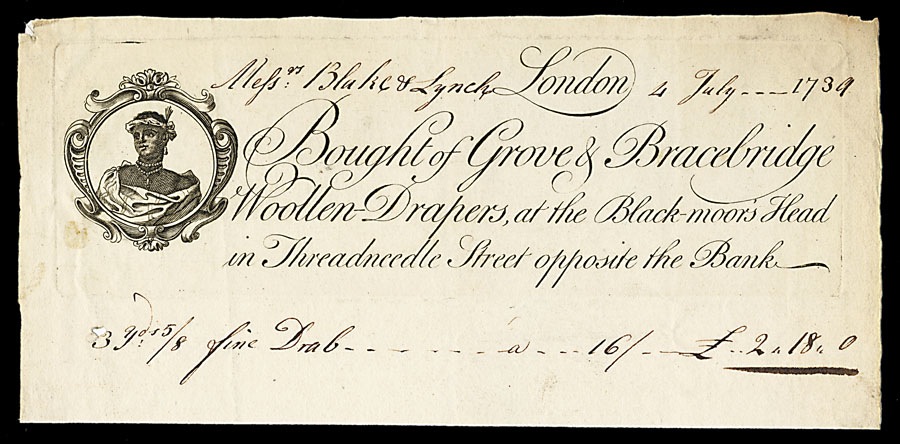 Mess.rs Blake & Lynch London 4 July 1739
Bought of Grove & Bracebridge
Woollen-Drapers, at the Black-moors Head
in Threadneedle Street opposite the Bank
3 yds. 5/8 fine Drab a 16/ £ 2 " 18 " 0